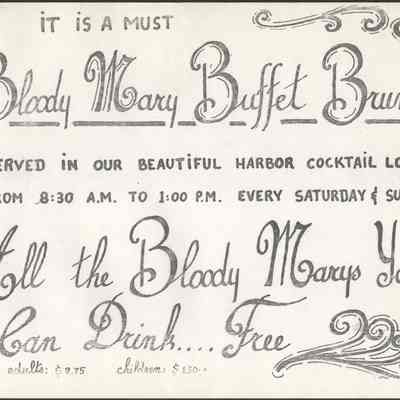 iT IS A MUST
Bloody Mary Buffet Brun
ERVED IN OUR BEAUTIFUL HARBOR COCKTAIL LO
ROM 8:30 A.M. TO 1:00 P.M. EVERY SATURDAY & SU
All the Bloody Marys Yo
Can Drink.... Free
adults: $9.75 children: $